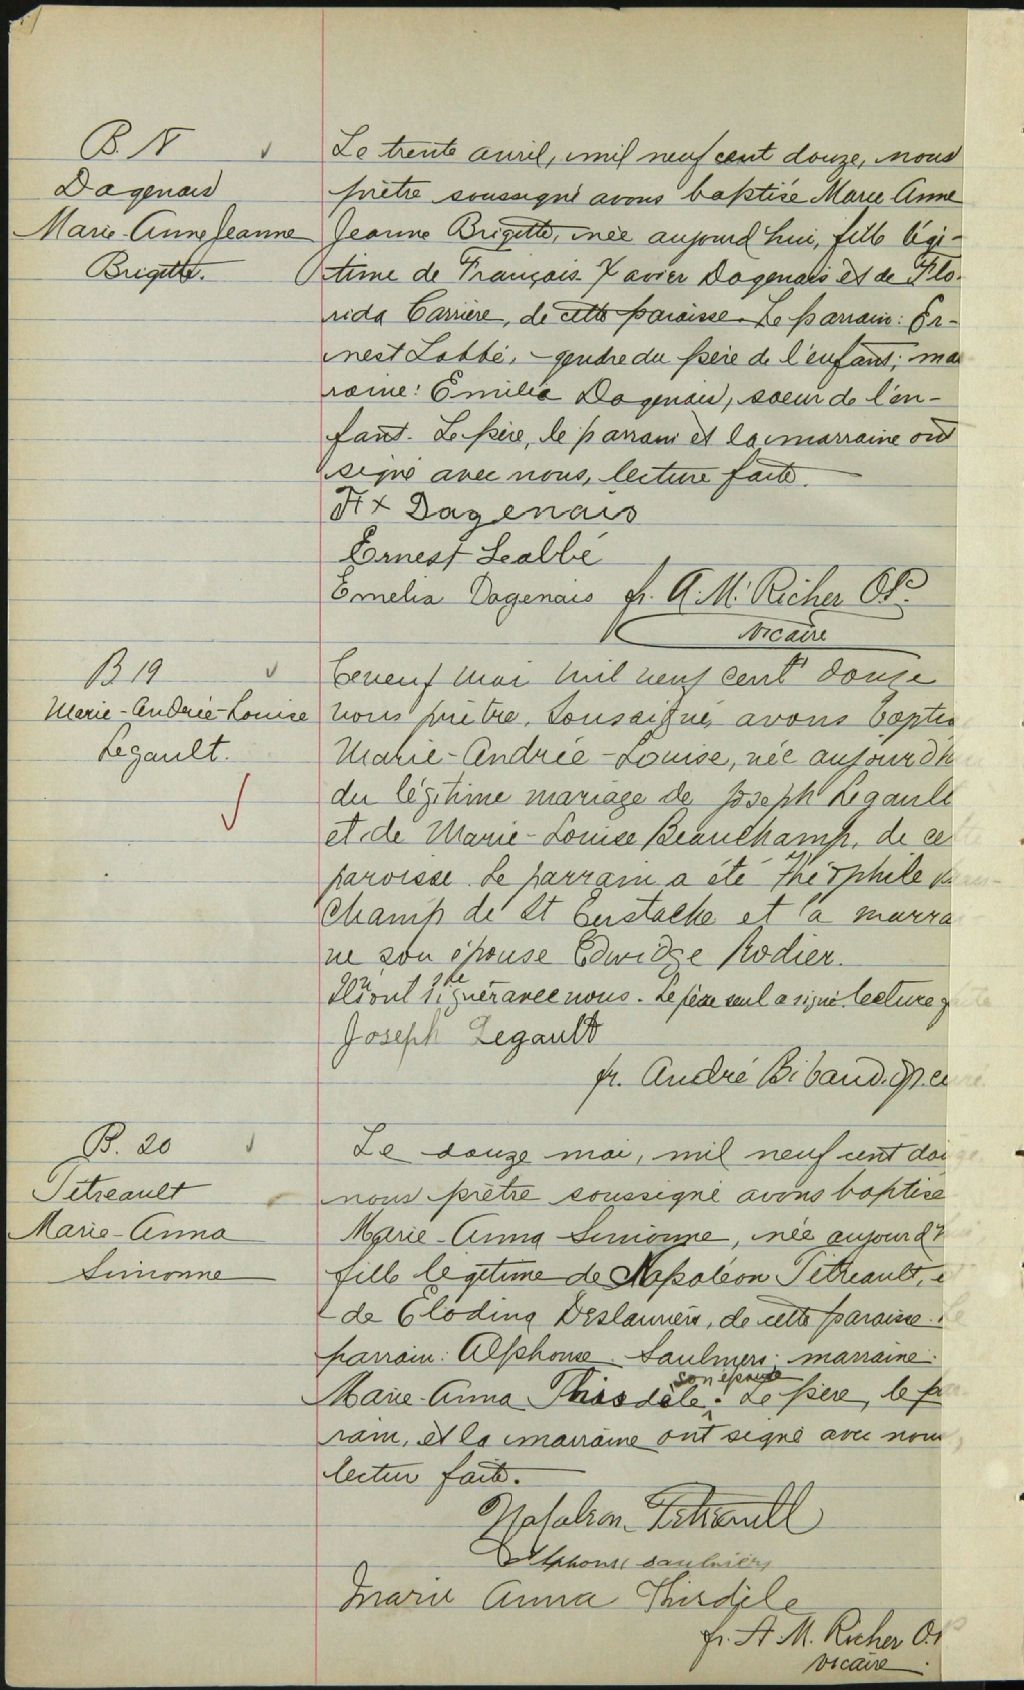 B. N
Dagenais
Marie-Anne Jeanne
Brigitte.
Le trente avril, mil neuf cent douze, nous
prêtre soussigné avons baptisé Marie Anne
Jeanne Brigitte, née aujourd'hui, fille légi-
time de François-Xavier Dagenais et de Flo-
rida Carrière, de cette paroisse. Le parrain: Er-
nest Labbé, gendre du père de l'enfant; mar
raine: Emilia Dagenais, soeur de l'en-
fant. Le père, le parrain et la marraine ont
signé avec nous, lecture faite.
F X Dagenais
Ernest Labbé
Emelia Dagenais fr. A. M. Richer O.P.
vicaire
B 19
Marie-Andrée-Louise
Legault.
Ce neuf mai mil neuf cent douze
nous prêtre, soussigné, avons baptis
Marie-Andrée-Louise, née aujourd'h
du légitime mariage de Joseph Legault
et de Marie-Louise Beauchamp, de ce
paroisse. Le parrain a été Théophile
champ de St Eustache et la marra
ne son épouse Edwidge Rodier.
Ils n'ont su signer avec nous. Le père seul a signé. lecture
Joseph Legault
fr. André Bibaud. op. cu
B. 20
Tétreault
Marie-Anna
Simonne
Le douze mai, mil neuf cent dou
nous prêtre soussigné avons baptisé
Marie-Anna Simonne, née aujourd'h
fille légitime de Napoléon Tétreault, e
de Elodina Deslauriers, de cette paroisse. Le
parrain: Alphonse Saulniers; marraine:
son épouse
Marie-Anna Thisdèle. Le père, le pa
rain, et la marraine ont signé avec nous,
lecture faite.
Napoléon Tetreault
Alphonse Saulniers
Marie Anna Thisdele
fr. A. M. Richer O.P
vicaire.